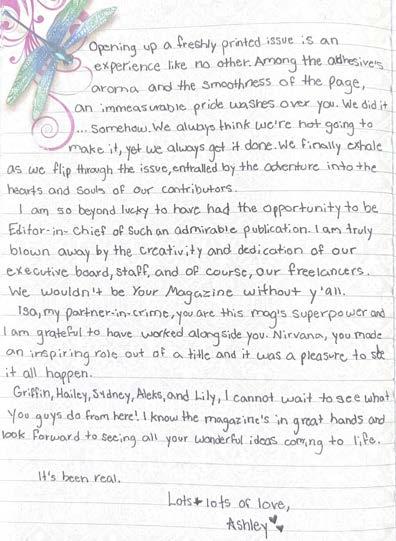 Opening up a freshly printed issue is an
experience like no other. Among the adhesive's
aroma and the smoothness of the page,
an immeasurable pride washes over you. We did it
... somehow. We always think we're not going to
make it, yet we always get it done. We finally exhale
as we flip through the issue, entralled by the adventure into the
hearts and souls of our contributors.
I am so beyond lucky to have had the opportunity to be
Editor-in-Chief of such an admirable publication. I am truly
blown away by the creativity and dedication of our
executive board, staff, and of course, our freelancers.
We wouldn't be Your Magazine without y'all.
Isa, my partner-in-crime, you are this mag's superpower and
I am grateful to have worked alongside you. Nirvana, you made
an inspiring role out of a title and it was a pleasure to see
it all happen.
Griffin, Hailey, Sydney, Aleks, and Lily, I cannot wait to see what
you guys do from here! I know the magazine's in great hands and
look forward to seeing all your wonderful ideas coming to life.
It's been real.
Lots + lots of love,
Ashley